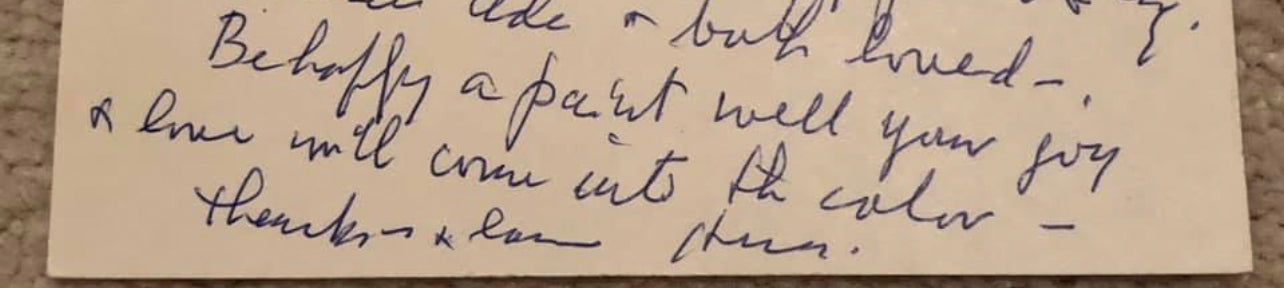 & both loved -
Be happy & paint well your joy
& love will come into the color -
thanks & love